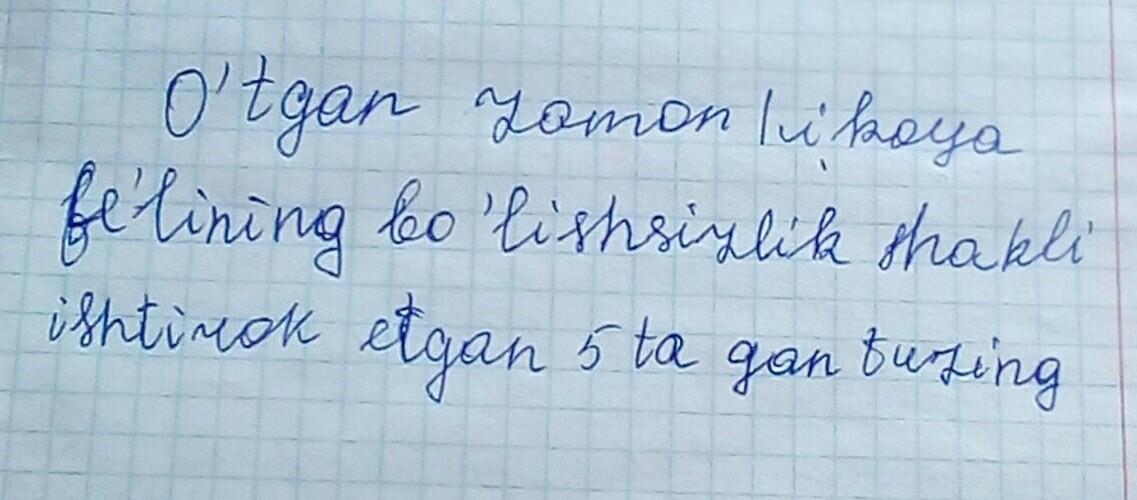 O'tgan zamon hikoya
fe'lining bo'lishsizlik shakli
ishtirok etgan 5 ta gan tuzing